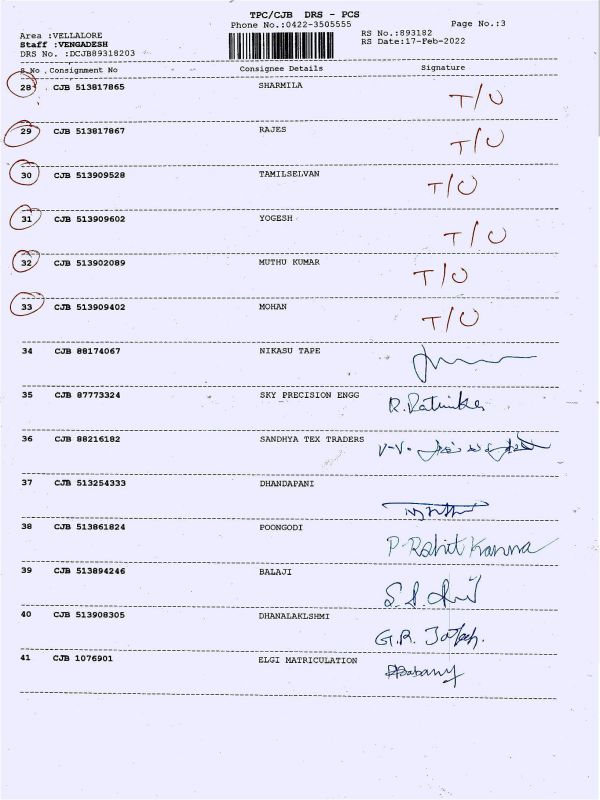 TPC/CJB DRS - PCS
Phone No.:0422-3505555
Page No.:3
Area :VELLALORE
RS No.:893182
Staff :VENGADESH
RS Date:17-Feb-2022
DRS No. :DCJB89318203
S.No. Consignment No Consignee Details Signature
28 CJB 513817865 SHARMILA T/O
29 CJB 513817867 RAJES T/O
30 CJB 513909528 TAMILSELVAN T/O
31 CJB 513909602 YOGESH T/O
32 CJB 513902089 MUTHU KUMAR T/O
33 CJB 513909402 MOHAN T/O
34 CJB 88174067 NIKASU TAPE
35 CJB 87773324 SKY PRECISION ENGG
36 CJB 88216182 SANDHYA TEX TRADERS
37 CJB 513254333 DHANDAPANI
38 CJB 513861824 POONGODI P. Rohit Kanna
39 CJB 513894246 BALAJI
40 CJB 513908305 DHANALAKLSHMI
41 CJB 1076901 ELGI MATRICULATION